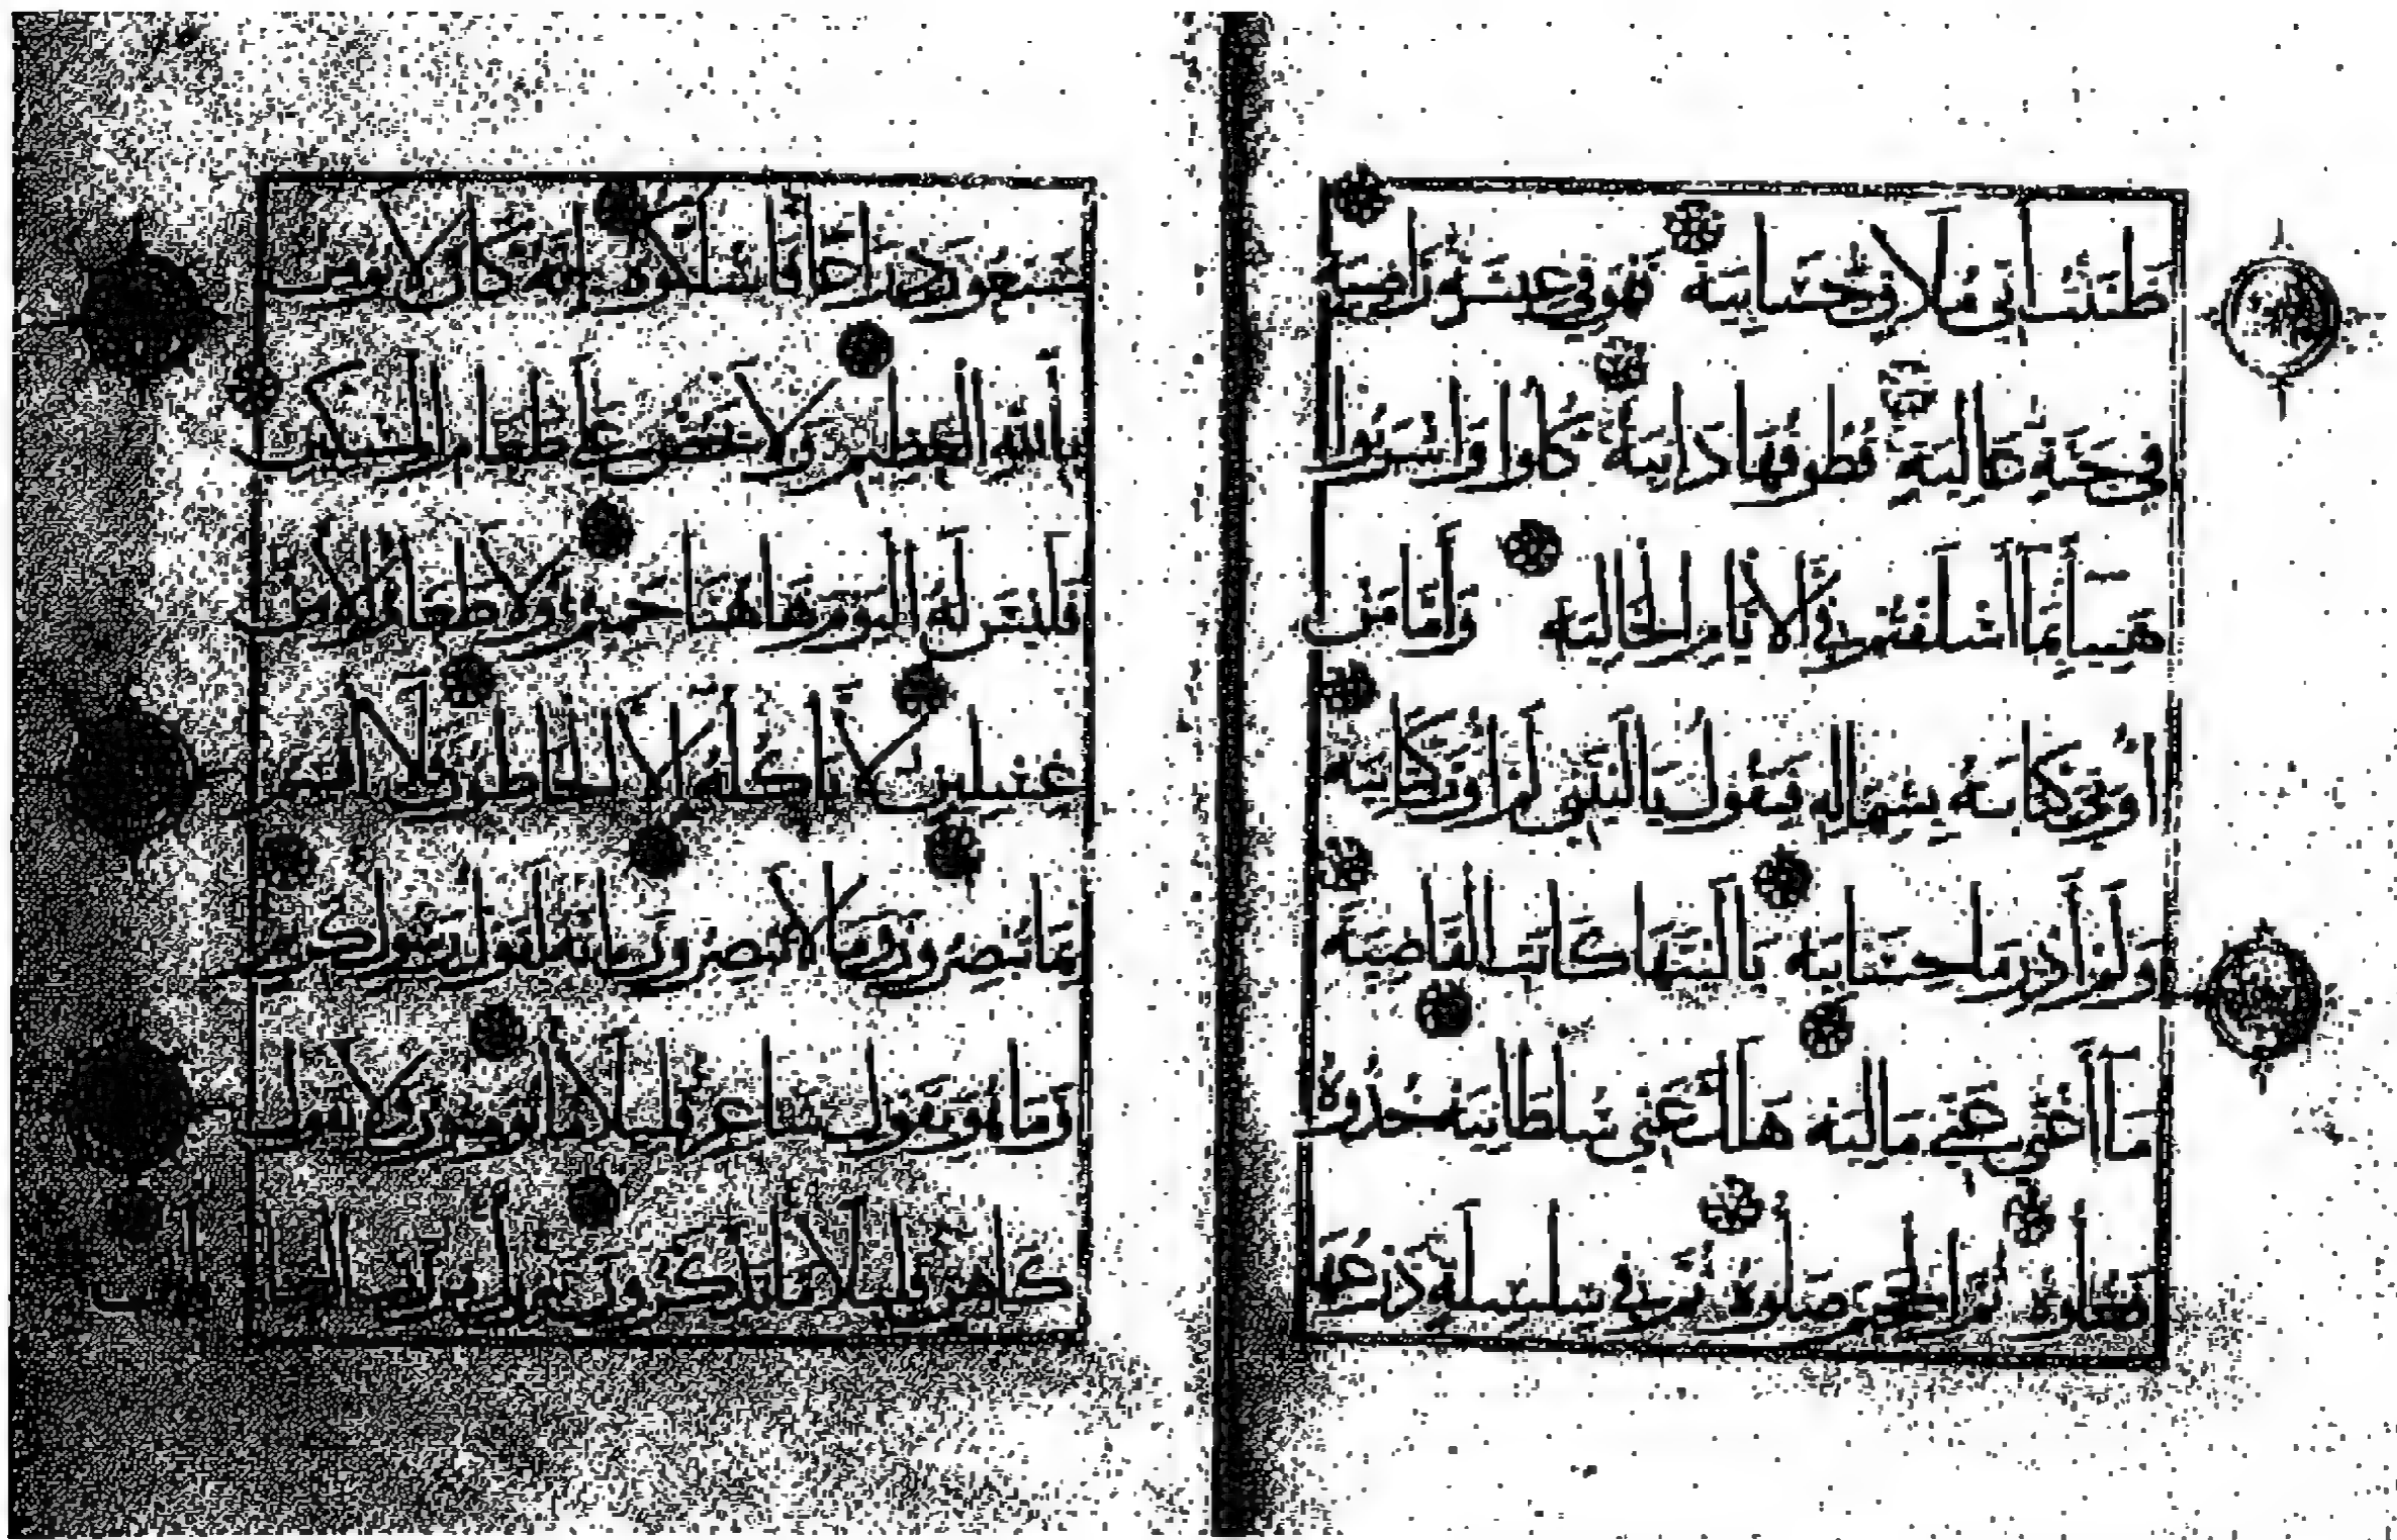 ظننت اني ملاق حسابيه فهو في عيشة راضية
في جنة عالية قطوفها دانية كلوا واشربوا
هنيئا بما اسلفتم في الايام الخالية واما من
اوتي كتابه بشماله فيقول يا ليتني لم اوت كتابيه
ولم ادر ما حسابيه يا ليتها كانت القاضية
ما اغنى عني ماليه هلك عني سلطانيه خذوه
فغلوه ثم الجحيم صلوه ثم في سلسلة ذرعها
سبعون ذراعا فاسلكوه انه كان لا يومن
بالله العظيم ولا يحض على طعام المسكين
فليس له اليوم هاهنا حميم ولا طعام الا من
غسلين لا ياكله الا الخاطون فلا اقسم
بما تبصرون وما لا تبصرون انه لقول رسول كريم
وما هو بقول شاعر قليلا ما تومنون ولا بقول
كاهن قليلا ما تذكرون تنزيل من رب العالمين